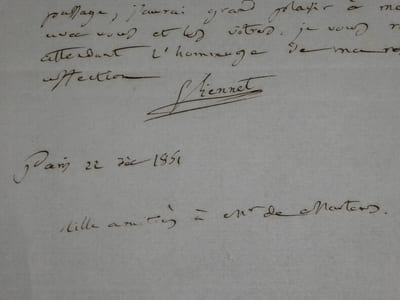 passage, j'aurai grand plaisir à
avec vous et les vôtres. je vous
attendant l'hommage de
affection
Paris 22 déc 1851
Mille amitiés à Mr de Martens.